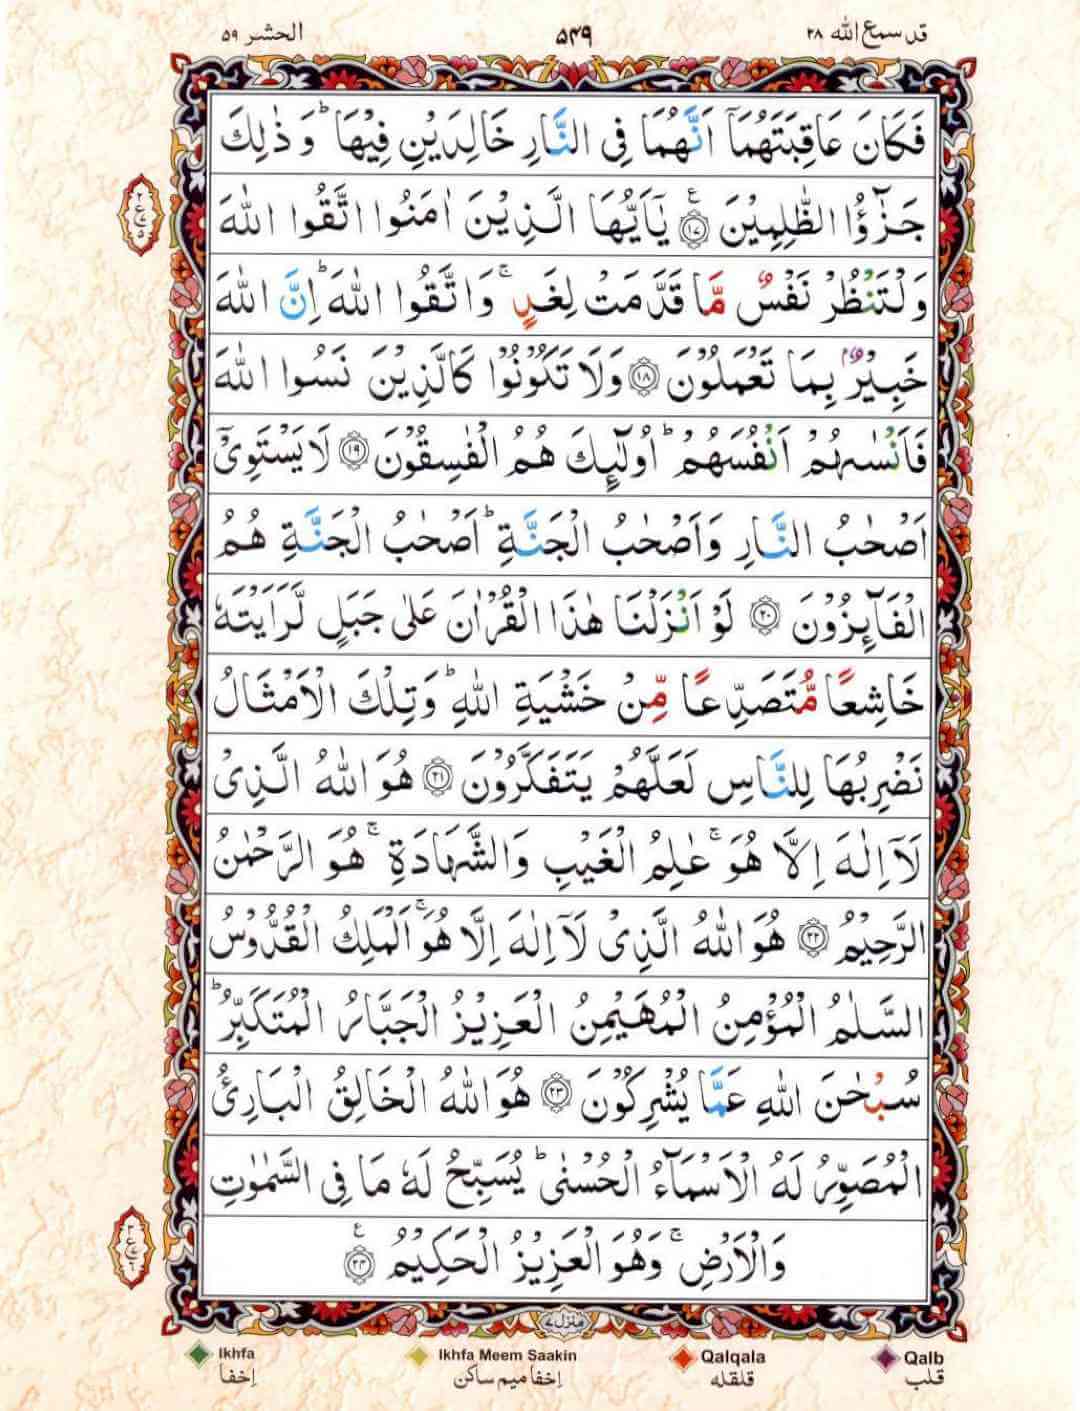 قد سمع الله ۲۸ ۵۴۹ الحشر ۵۹
فَكَانَ عَاقِبَتَهُمَاۤ اَنَّهُمَا فِى النَّارِ خَالِدَيْنِ فِيْهَا ؕ وَ ذٰلِكَ
جَزٰٓؤُا الظّٰلِمِيْنَ ﴿۱۷﴾ ع يٰۤاَيُّهَا الَّذِيْنَ اٰمَنُوا اتَّقُوا اللّٰهَ
وَلْتَنْظُرْ نَفْسٌ مَّا قَدَّمَتْ لِغَدٍ ۚ وَ اتَّقُوا اللّٰهَ ؕ اِنَّ اللّٰهَ
خَبِيْرٌۢ بِمَا تَعْمَلُوْنَ ﴿۱۸﴾ وَلَا تَكُوْنُوْا كَالَّذِيْنَ نَسُوا اللّٰهَ
فَاَنْسٰٮهُمْ اَنْفُسَهُمْ ؕ اُولٰٓئِكَ هُمُ الْفٰسِقُوْنَ ﴿۱۹﴾ لَا يَسْتَوِىْۤ
اَصْحٰبُ النَّارِ وَاَصْحٰبُ الْجَنَّةِ ؕ اَصْحٰبُ الْجَنَّةِ هُمُ
الْفَآئِزُوْنَ ﴿۲۰﴾ لَوْ اَنْزَلْنَا هٰذَا الْقُرْاٰنَ عَلٰى جَبَلٍ لَّرَاَيْتَهٗ
خَاشِعًا مُّتَصَدِّعًا مِّنْ خَشْيَةِ اللّٰهِ ؕ وَتِلْكَ الْاَمْثَالُ
نَضْرِبُهَا لِلنَّاسِ لَعَلَّهُمْ يَتَفَكَّرُوْنَ ﴿۲۱﴾ هُوَ اللّٰهُ الَّذِىْ
لَاۤ اِلٰهَ اِلَّا هُوَ ۚ عٰلِمُ الْغَيْبِ وَالشَّهَادَةِ ۚ هُوَ الرَّحْمٰنُ
الرَّحِيْمُ ﴿۲۲﴾ هُوَ اللّٰهُ الَّذِىْ لَاۤ اِلٰهَ اِلَّا هُوَ ۚ اَلْمَلِكُ الْقُدُّوْسُ
السَّلٰمُ الْمُؤْمِنُ الْمُهَيْمِنُ الْعَزِيْزُ الْجَبَّارُ الْمُتَكَبِّرُ ؕ
سُبْحٰنَ اللّٰهِ عَمَّا يُشْرِكُوْنَ ﴿۲۳﴾ هُوَ اللّٰهُ الْخَالِقُ الْبَارِئُ
الْمُصَوِّرُ لَهُ الْاَسْمَآءُ الْحُسْنٰى ؕ يُسَبِّحُ لَهٗ مَا فِى السَّمٰوٰتِ
وَالْاَرْضِ ۚ وَهُوَ الْعَزِيْزُ الْحَكِيْمُ ﴿۲۴﴾ ع
منزل ۷
Ikhfa Ikhfa Meem Saakin Qalqala Qalb
اِخفا اِخفا ميم ساكن قلقله قلب